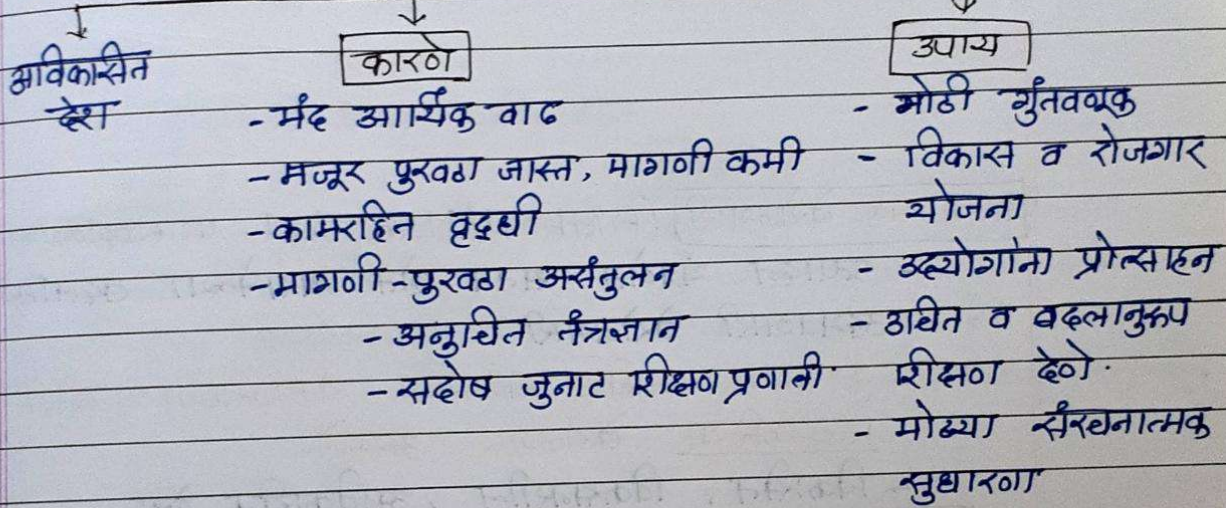 अविकासीत
देश
कारणे
- मंद आर्थिक वाढ
- मजूर पुरवठा जास्त, मागणी कमी
- कामरहित वृद्धी
- मागणी - पुरवठा असंतुलन
- अनुचित तंत्रज्ञान
- सदोष जुनाट शीक्षण प्रणाली
उपाय
- मोठी गुंतवणूक
- विकास व रोजगार
योजना
- उद्योगांना प्रोत्साहन
- उचित व बदलानुरूप
शीक्षण देणे.
- मोठ्या संरचनात्मक
सुधारणा